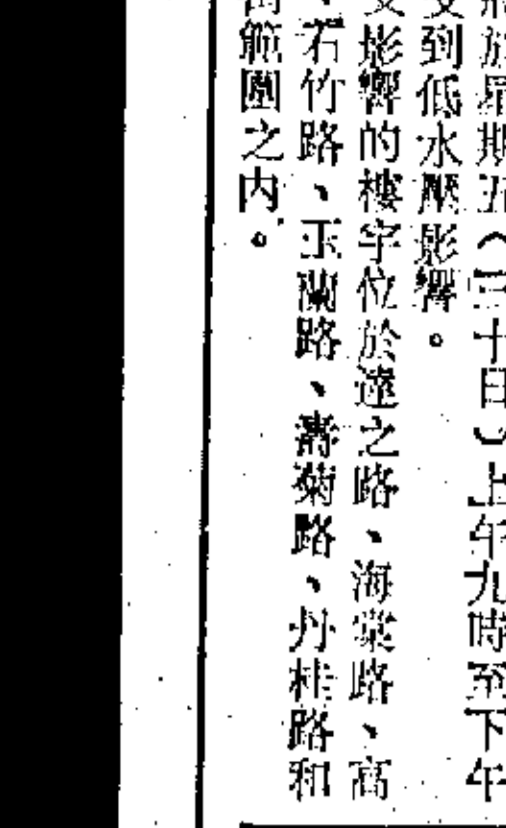 於星期五（三十日）上午九時至下午
受到低水壓影響。
受影響的樓宇位於達之路、海棠路、高
、石竹路、玉蘭路、壽菊路、丹桂路和
範圍之內。